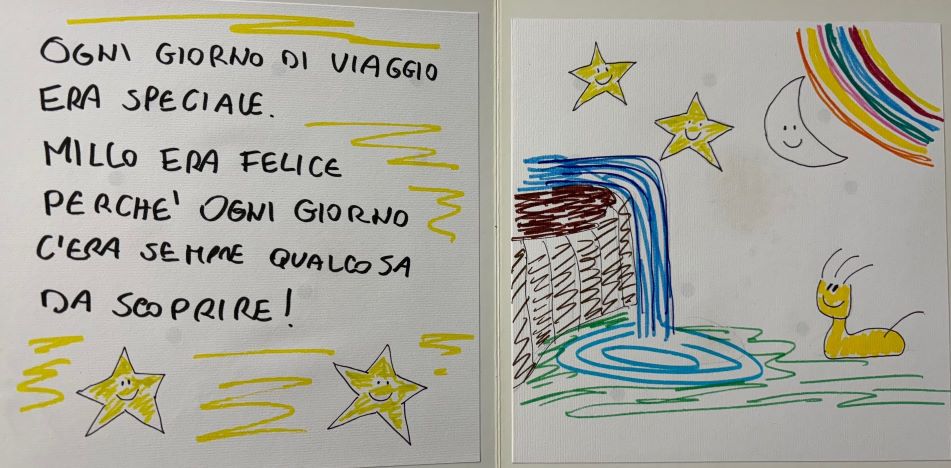 OGNI GIORNO DI VIAGGIO
ERA SPECIALE.
MILLO ERA FELICE
PERCHE' OGNI GIORNO
C'ERA SEMPRE QUALCOSA
DA SCOPRIRE!